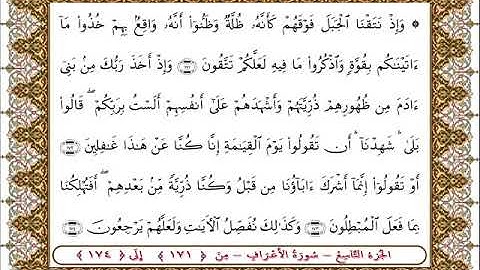 ۞ وَإِذْ نَتَقْنَا ٱلْجَبَلَ فَوْقَهُمْ كَأَنَّهُۥ ظُلَّةٌ وَظَنُّوٓا۟ أَنَّهُۥ وَاقِعٌۢ بِهِمْ خُذُوا۟ مَآ
ءَاتَيْنَـٰكُم بِقُوَّةٍ وَٱذْكُرُوا۟ مَا فِيهِ لَعَلَّكُمْ تَتَّقُونَ ﴿١٧١﴾ وَإِذْ أَخَذَ رَبُّكَ مِنۢ بَنِىٓ
ءَادَمَ مِن ظُهُورِهِمْ ذُرِّيَّتَهُمْ وَأَشْهَدَهُمْ عَلَىٰٓ أَنفُسِهِمْ أَلَسْتُ بِرَبِّكُمْ ۖ قَالُوا۟
بَلَىٰ ۛ شَهِدْنَآ ۛ أَن تَقُولُوا۟ يَوْمَ ٱلْقِيَـٰمَةِ إِنَّا كُنَّا عَنْ هَـٰذَا غَـٰفِلِينَ ﴿١٧٢﴾
أَوْ تَقُولُوٓا۟ إِنَّمَآ أَشْرَكَ ءَابَآؤُنَا مِن قَبْلُ وَكُنَّا ذُرِّيَّةً مِّنۢ بَعْدِهِمْ ۖ أَفَتُهْلِكُنَا
بِمَا فَعَلَ ٱلْمُبْطِلُونَ ﴿١٧٣﴾ وَكَذَٰلِكَ نُفَصِّلُ ٱلْـَٔايَـٰتِ وَلَعَلَّهُمْ يَرْجِعُونَ ﴿١٧٤﴾
الجزء التاسع - سورة الأعراف - من ﴿١٧١﴾ إلى ﴿١٧٤﴾